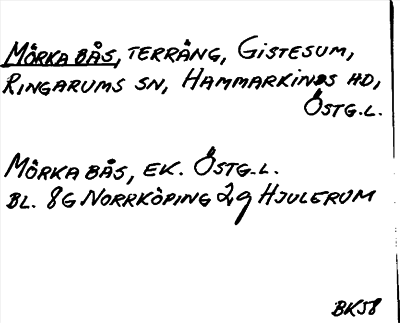 MÖRKA BÅS, TERRÄNG, GISTESUM,
RINGARUMS SN, HAMMARKINDS HD,
ÖSTG.L.
MÖRKA BÅS, EK. ÖSTG.L.
BL. 8G NORRKÖPING 2g HJULERUM
BK58